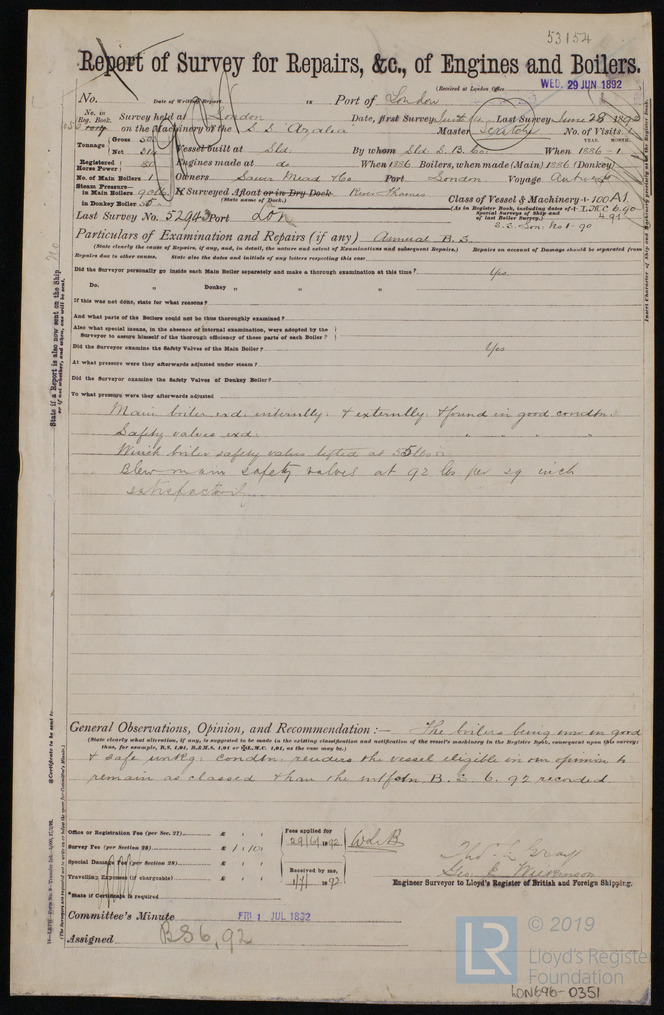 53154
Report of Survey for Repairs, &c., of Engines and Boilers.
(Received at London Office
WED. 29 JUN 1892
No. Date of Writing Report in Port of London
No. in Reg. Book. Survey held at London Date, first Survey Last Survey June 28 1892
on the Machinery of the S.S. Azalea Master No. of Visits 1
Tonnage Gross Net 314 Vessel built at Sld. By whom Sld. S. B. Co. When 1886 - 1
YEAR. MONTH.
Registered Horse Power 80 Engines made at do When 1886 Boilers, when made (Main) 1886 (Donkey)
No. of Main Boilers 1 Owners Mead & Co Port London Voyage Antwerp
Steam Pressure in Main Boilers 90 lb If Surveyed Afloat or in Dry Dock River Thames
(State name of Dock.)
in Donkey Boiler 50
Class of Vessel & Machinery + 100 A1
(As in Register Book, including dates of Special Surveys of Ship and of last Boiler Survey.) + L.M.C. 6.90
4.91
S.S. Lon: No 1-90
Last Survey No. 52943 Port Lon
Particulars of Examination and Repairs (if any) Annual B.S.
(State clearly the cause of Repairs, if any, and, in detail, the nature and extent of Examinations and subsequent Repairs.) Repairs on account of Damage should be separated from
Repairs due to other causes. State also the dates and initials of any letters respecting this case
Did the Surveyor personally go inside each Main Boiler separately and make a thorough examination at this time? Yes
Do. " Donkey " " "
If this was not done, state for what reasons?
And what parts of the Boilers could not be thus thoroughly examined?
Also what special means, in the absence of internal examination, were adopted by the
Surveyor to assure himself of the thorough efficiency of these parts of each Boiler?
Did the Surveyor examine the Safety Valves of the Main Boiler? Yes
At what pressure were they afterwards adjusted under steam?
Did the Surveyor examine the Safety Valves of Donkey Boiler?
To what pressure were they afterwards adjusted
Main boiler exd: internlly: & externlly: & found in good condtn:
Safety valves exd: " " " "
Winch boiler safety valves lifted at 55 lbs
Blew main safety valves at 92 lbs per sq inch
satisfactorily.
General Observations, Opinion, and Recommendation:— The boilers being now in good
(State clearly what alteration, if any, is suggested to be made in the existing classification and notification of the vessel's machinery in the Register Book, consequent upon this survey;
thus, for example, B.S. 1,91, B.&M.S. 1,91 or L.M.C. 1,91, as the case may be.)
& safe workg: condtn: renders the vessel eligible in our opinion to
remain as classed & have the notfctn B.S. 6.92 recorded.
Office or Registration Fee (per Sec. 27) £
Survey Fee (per Section 28) £ 1 . 10
Special Damage Fee (per Section 28) £
Travelling Expenses (if chargeable) £
*State if Certificate is required
Fees applied for 29/6/1892
Received by me, 1/7/1892
Geo.
Engineer Surveyor to Lloyd's Register of British and Foreign Shipping.
Committee's Minute FRI 1 JUL 1892
Assigned BS 6,92
State if a Report is also now sent on the Ship No
or if not whether, and when, one will be sent.
*Certificate to be sent to
(The Surveyors are requested not to write on or below the space for Committee's Minute.)
© 2019
LR
Lloyd's Register
Foundation
LON696-0351